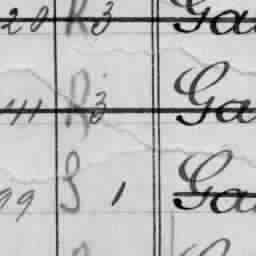 20 R 3 Ga
411 R 3 Ga
99 S 1 Ga